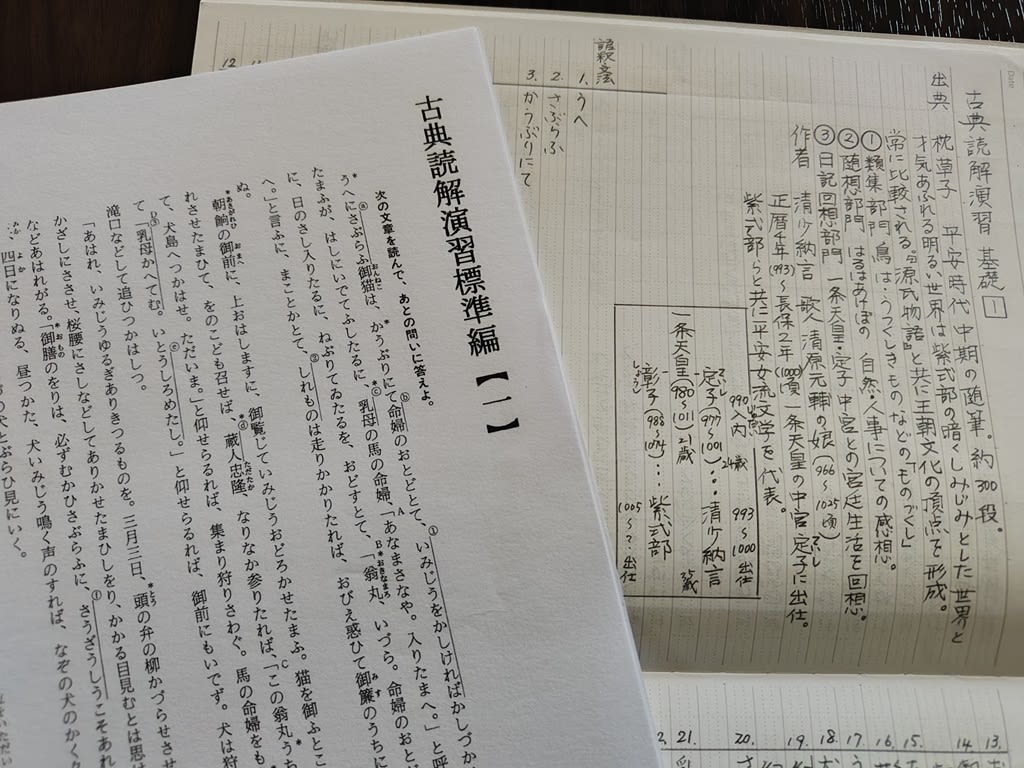 古典読解演習 基礎 1
出典 枕草子 平安時代中期の随筆。約300段。
才気あふれる明るい世界は紫式部の暗くしみじみとした世界と
常に比較される。『源氏物語』と共に王朝文化の頂点を形成。
①類集部門「鳥は」「うつくしきもの」などの「ものづくし」
②随想部門 はるはあけぼの 自然・人事についての感想。
③日記回想部門 一条天皇・定子中宮との宮廷生活を回想。
作者 清少納言 歌人清原元輔の娘(966~1025頃)
正暦4年(993)~長保2年(1000)頃 一条天皇の中宮定子に出仕。
紫式部らと共に平安女流文学を代表。
990入内 24歳 993~1000 出仕
定子(977~1001)…清少納言
一条天皇(980~1011)
彰子(988~1074)…紫式部
1005~?出仕
語釈文法
1. うへ
2. さぶらふ
3. かうぶりにて
11.
12
13.
14
15.
16.
17.
18.
19.
20.
21.
古典読解演習標準編【一】
次の文章を読んで、あとの問いに答えよ。
うへにさぶらふ御猫は、かうぶりにて命婦のおとどとて、いみじうをかしければかしづか
たまふが、はしにいでてふしたるに、乳母の馬の命婦、「あなまさなや。入りたまへ。」と呼
に、日のさし入りたるに、ねぶりてゐたるを、おどすとて、「翁丸、いづら。命婦のおとど
へ。」と言ふに、まことかとて、しれものは走りかかりたれば、おびえ惑ひて御簾のうちに
ぬ。
朝餉の御前に、上おはしますに、御覧じていみじうおどろかせたまふ。猫を御ふとこ
れさせたまひて、をのこども召せば、蔵人忠隆、なりなか参りたれば、「この翁丸うち
て、犬島へつかはせ。ただいま。」と仰せらるれば、集まり狩りさわぐ。馬の命婦をも
て「乳母かへてむ。いとうしろめたし。」と仰せらるれば、御前にもいでず。犬は狩
滝口などして追ひつかはしつ。
「あはれ、いみじうゆるぎありきつるものを。三月三日、頭の弁の柳かづらせさ
かざしにささせ、桜腰にさしなどしてありかせたまひしをり、かかる目見むとは思は
などあはれがる。「御膳のをりは、必ずむかひさぶらふに、さうざうしうこそあれ
、四日になりぬる、昼つかた、犬いみじう鳴く声のすれば、なぞの犬のかく久
の犬とぶらひ見にいく。